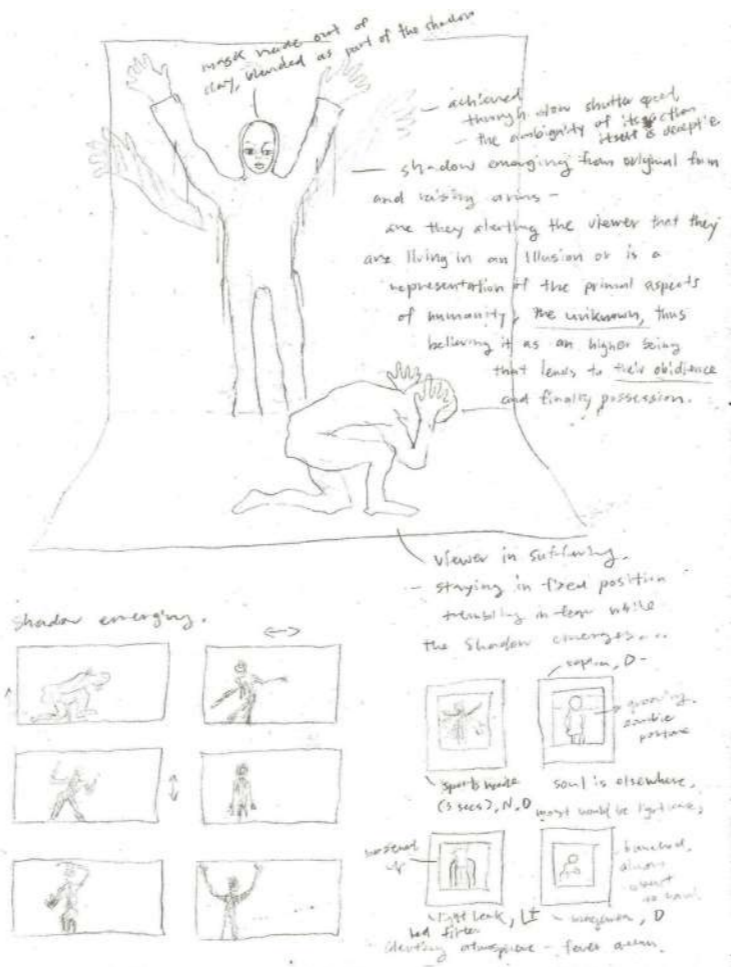 mask made out of
clay, blended as part of the shadow
- achieved
through slow shutter speed,
- the ambiguity of its action
itself is
- shadow emerging from original form
and raising arms -
are they alerting the viewer that they
are living in an illusion or is a
representation of the primal aspects
of humanity, the unknown, thus
believing it as an higher being
that leads to their obidience
and finally possession.
viewer in suffering.
- staying in fixed position
trembling in fear while
the shadow emerges...
Shadow emerging.
, D -
zombie
posture
sports mode
(3 secs), N, D
soul is elsewhere,
most would be
light leak, L±
red filter
, D
atmosphere - fever